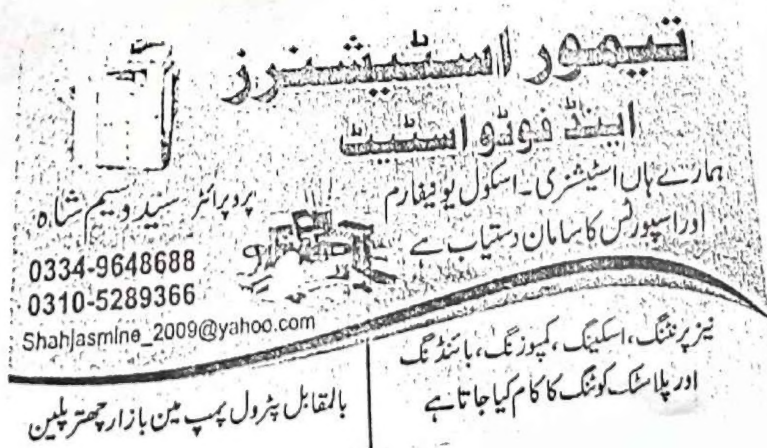 تیمور اسٹیشنرز
اینڈ فوٹو اسٹیٹ
ہمارے ہاں اسٹیشنری۔اسکول یونیفارم
اور اسپورٹس کا سامان دستیاب ہے
پروپرائٹر سید وسیم شاہ
0334-9648688
0310-5289366
Shahjasmine_2009@yahoo.com
نیز پرنٹنگ، اسکینگ، کمپوزنگ، بائنڈنگ
اور پلاسٹک کوٹنگ کا کام کیا جاتا ہے
بالمقابل پٹرول پمپ مین بازار چھتر پلین